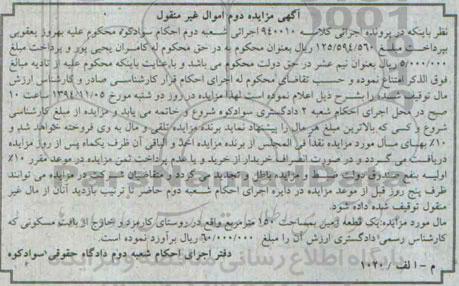 آگهی مزایده دوم اموال غیر منقول
نظر باینکه در پرونده اجرائی کلاسه ۹۴۰۰۱۰ اجرائی شعبه دوم احکام سوادکوه محکوم علیه بهروز یعقوبی
بپرداخت مبلغ ۱۲۵/۵۹۴/۵۶۰ ریال بعنوان محکوم به در حق محکوم له کامران یحیی پور و پرداخت مبلغ
۵/۰۰۰/۰۰۰ ریال بعنوان نیم عشر در حق دولت محکوم می باشد و با عنایت باینکه محکوم علیه از تادیه مبالغ
فوق الذکر امتناع نموده و حسب تقاضای محکوم له اجرای احکام قرار کارشناسی صادر و کارشناس ارزش
مال توقیف شده را بشرح ذیل اعلام نموده است لهذا مزایده در روز دو شنبه مورخ ۱۳۹۴/۱۱/۰۵ ساعت ۱۰
صبح در محل اجرای احکام شعبه ۲ دادگستری سوادکوه شروع و خاتمه می یابد و مزایده از مبلغ کارشناسی
شروع و کسی که بالاترین مبلغ هر مال را پیشنهاد نماید برنده مزایده تلقی و مال به وی فروخته خواهد شد و
۱۰٪ بهای مال مورد مزایده نقدا فی المجلس از برنده مزایده اخذ و الباقی آن ظرف یکماه پس از روز مزایده
دریافت می گردد و در صورت انصراف خریدار از خرید و یا عدم پرداخت ثمن مزایده در موعد مقرر ۱۰٪
اولیه بنفع صندوق دولت ضبط و مزایده باطل و تجدید می گردد و متقاضیان شرکت در مزایده می توانند
ظرف پنج روز قبل از موعد مزایده در دایره اجرای احکام شعبه دوم حاضر تا ترتیب بازدید آنان از مال غیر
منقول توقیف شده داده شود.
مال مورد مزایده: یک قطعه زمین بمساحت ۱۵۰ مترمربع واقع در روستای کارمزد و خارج از بافت مسکونی که
کارشناس رسمی دادگستری ارزش آن را مبلغ ۶۰/۰۰۰/۰۰۰ ریال برآورد نموده است.
دفتر اجرای احکام شعبه دوم دادگاه حقوقی سوادکوه
م - الف / ۱۰۲۰